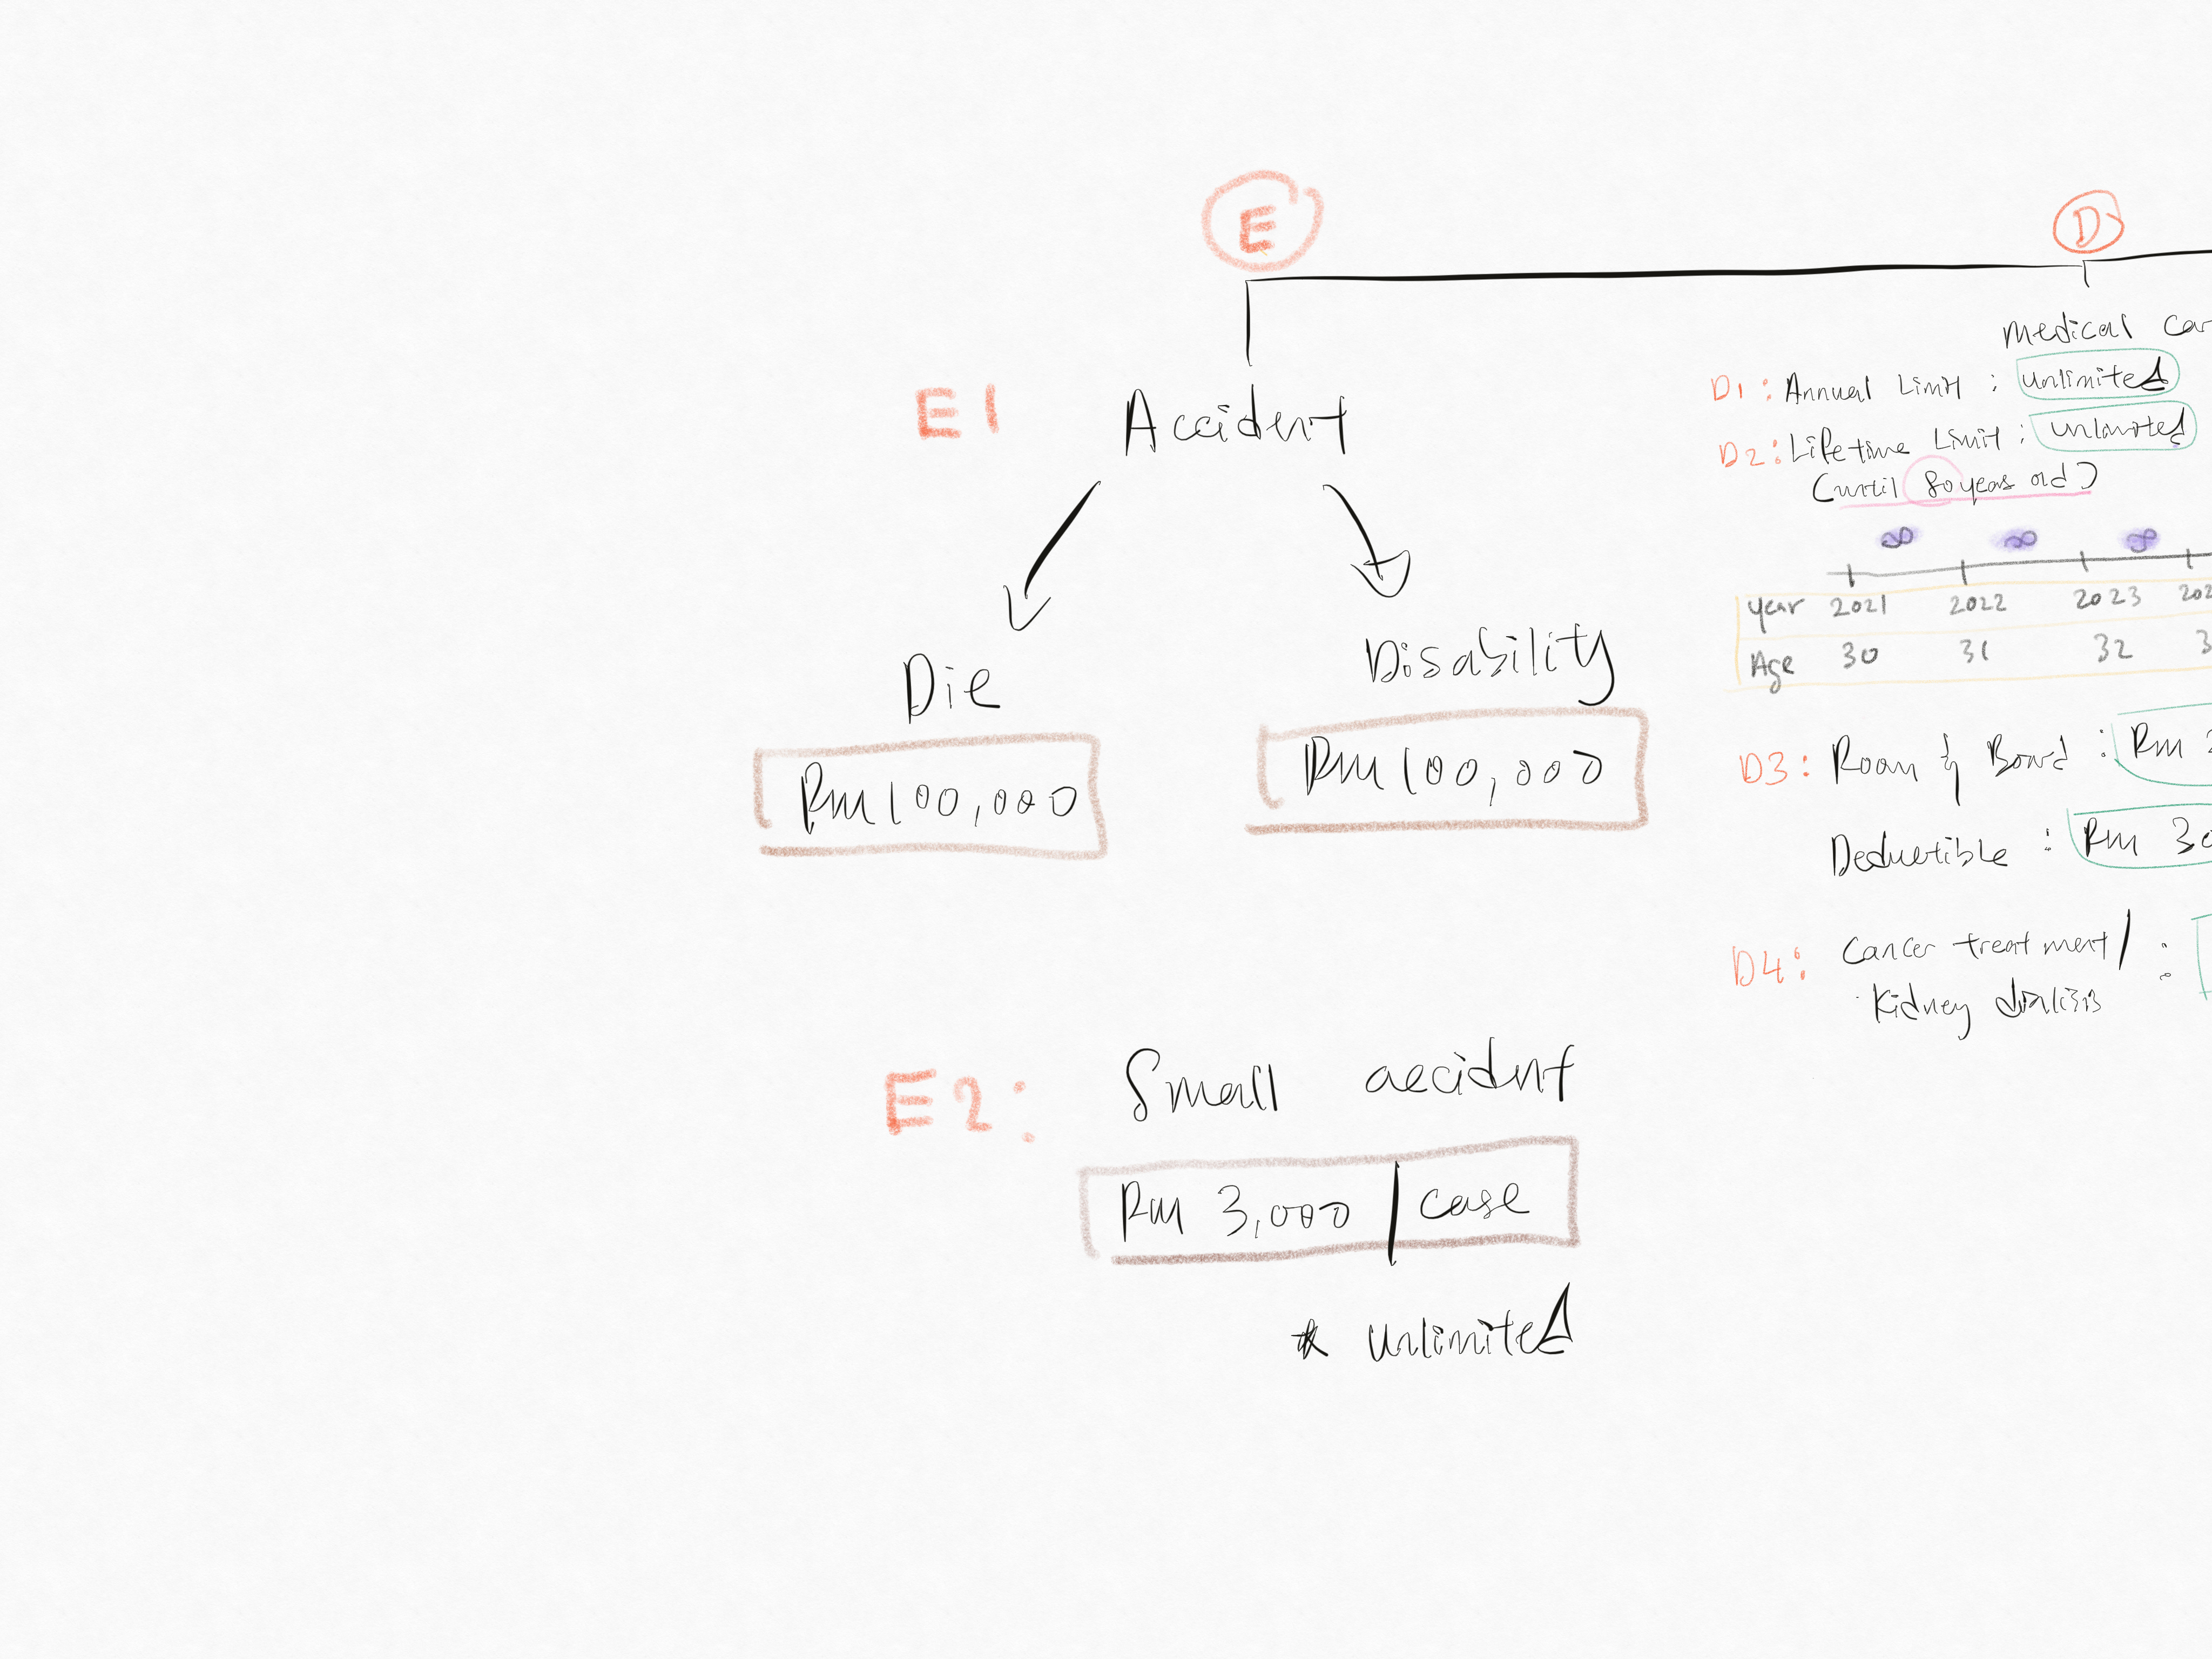 E
E1
Accident
Die
Disability
RM 100,000
RM 100,000
E2:
Small accident
RM 3,000 / case
* Unlimited
D
Medical Car
D1: Annual Limit : Unlimited
D2: Lifetime Limit : Unlimited
(until 80 years old)
∞ ∞ ∞
year 2021 2022 2023 202
Age 30 31 32 3
D3: Room & Board : RM 2
Deductible : RM 30
D4: Cancer treatment / :
Kidney dialisis